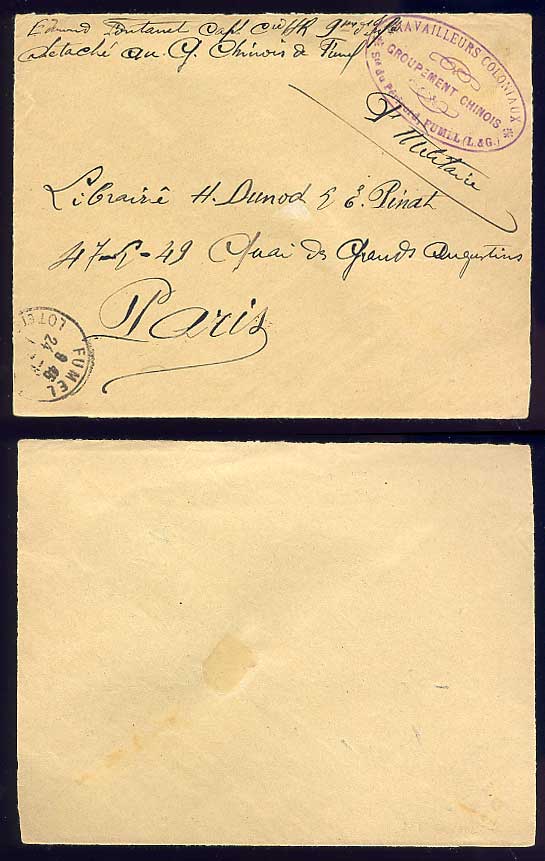 Edmond Fontanet Capt.
détaché au G. Chinois de Fumel
TRAVAILLEURS COLONIAUX
GROUPEMENT CHINOIS
Sté du Périgord, FUMEL (L.&G.)
Fr Militaire
Librairie H. Dunod & E. Pinat
47-&-49 Quai des Grands Augustins
Paris
FUMEL
LOT-ET
9 45
24